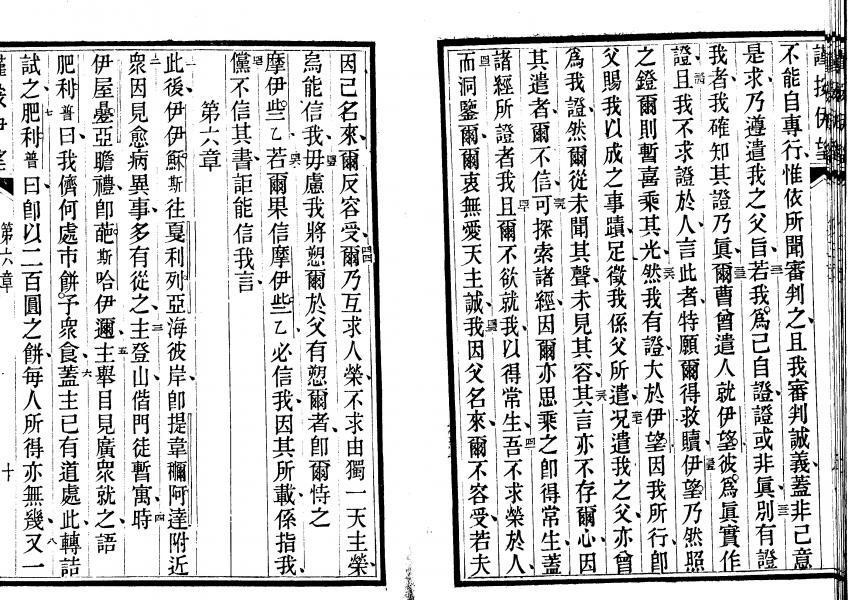 謹按伊望
不能自專行惟依所聞審判之且我審判誠義蓋非己意
是求乃遵遣我之父旨若我爲己自證證或非眞別有證
我者我確知其證乃眞爾曹曾遣人就伊望彼爲眞實作
證且我不求證於人言此者特願爾得救贖伊望乃然照
之鐙爾則暫喜乘其光然我有證大於伊望因我所行卽
父賜我以成之事蹟足徵我係父所遣況遣我之父亦曾
爲我證然爾從未聞其聲未見其容其言亦不存爾心因
其遣者爾不信可探索諸經因爾亦思乘之卽得常生蓋
諸經所證者我且爾不欲就我以得常生吾不求榮於人
而洞鑒爾爾衷無愛天主誠我因父名來爾不容受若夫
因己名來爾反容受爾乃互求人榮不求由獨一天主榮
烏能信我毋慮我將愬爾於父有愬爾者卽爾恃之
摩伊些乙若爾果信摩伊些乙必信我因其所載係指我
儻不信其書詎能信我言
第六章
此後伊伊穌斯往戛利列亞海彼岸卽提韋𤫊阿達附近
衆因見愈病異事多有從之主登山偕門徒暫寓時
伊屋叠亞瞻禮卽葩斯哈伊邇主舉目見廣衆就之語
肥利普曰我儕何處市餅予衆食蓋主已有道處此轉詰
試之肥利普曰卽以二百圓之餅每人所得亦無幾又一
第六章
十